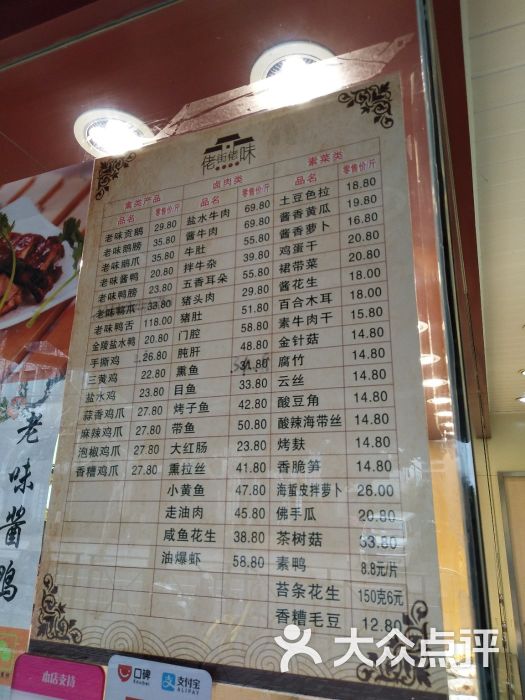 佬街佬味
禽类产品
品名 零售价/斤
老味贡鹅 29.80
老味鹅膀 35.80
老味鹅爪 35.80
老味酱鸭 20.80
老味鸭膀 23.80
老味鸭爪 33.80
老味鸭舌 118.00
金陵盐水鸭 20.80
手撕鸡 26.80
三黄鸡 22.80
盐水鸡 23.80
蒜香鸡爪 27.80
麻辣鸡爪 27.80
泡椒鸡爪 27.80
香糟鸡爪 27.80
卤肉类
品名 零售价/斤
盐水牛肉 69.80
酱牛肉 69.80
牛肚 55.80
拌牛杂 39.80
五香耳朵 55.80
猪头肉 29.80
猪肚 51.80
门腔 58.80
肫肝
熏鱼 31.80
目鱼 33.80
烤子鱼 42.80
带鱼 50.80
大红肠 23.80
熏拉丝 41.80
小黄鱼 47.80
走油肉 45.80
咸鱼花生 38.80
油爆虾 58.80
素菜类
品名 零售价/斤
土豆色拉 18.80
酱香黄瓜 19.80
酱香萝卜 16.80
鸡蛋干 20.80
裙带菜 18.00
酱花生 18.00
百合木耳 18.00
素牛肉干 15.80
金针菇 14.80
腐竹 14.80
云丝 14.80
酸豆角 14.80
酸辣海带丝 14.80
烤麸 14.80
香脆笋 14.80
海蜇皮拌萝卜 26.00
佛手瓜 20.80
茶树菇 33.80
素鸭 8.8元/片
苔条花生 150克6元
香糟毛豆 12.80
老味酱鸭
本店支持
口碑
Koubei
支付宝
ALIPAY
大众点评